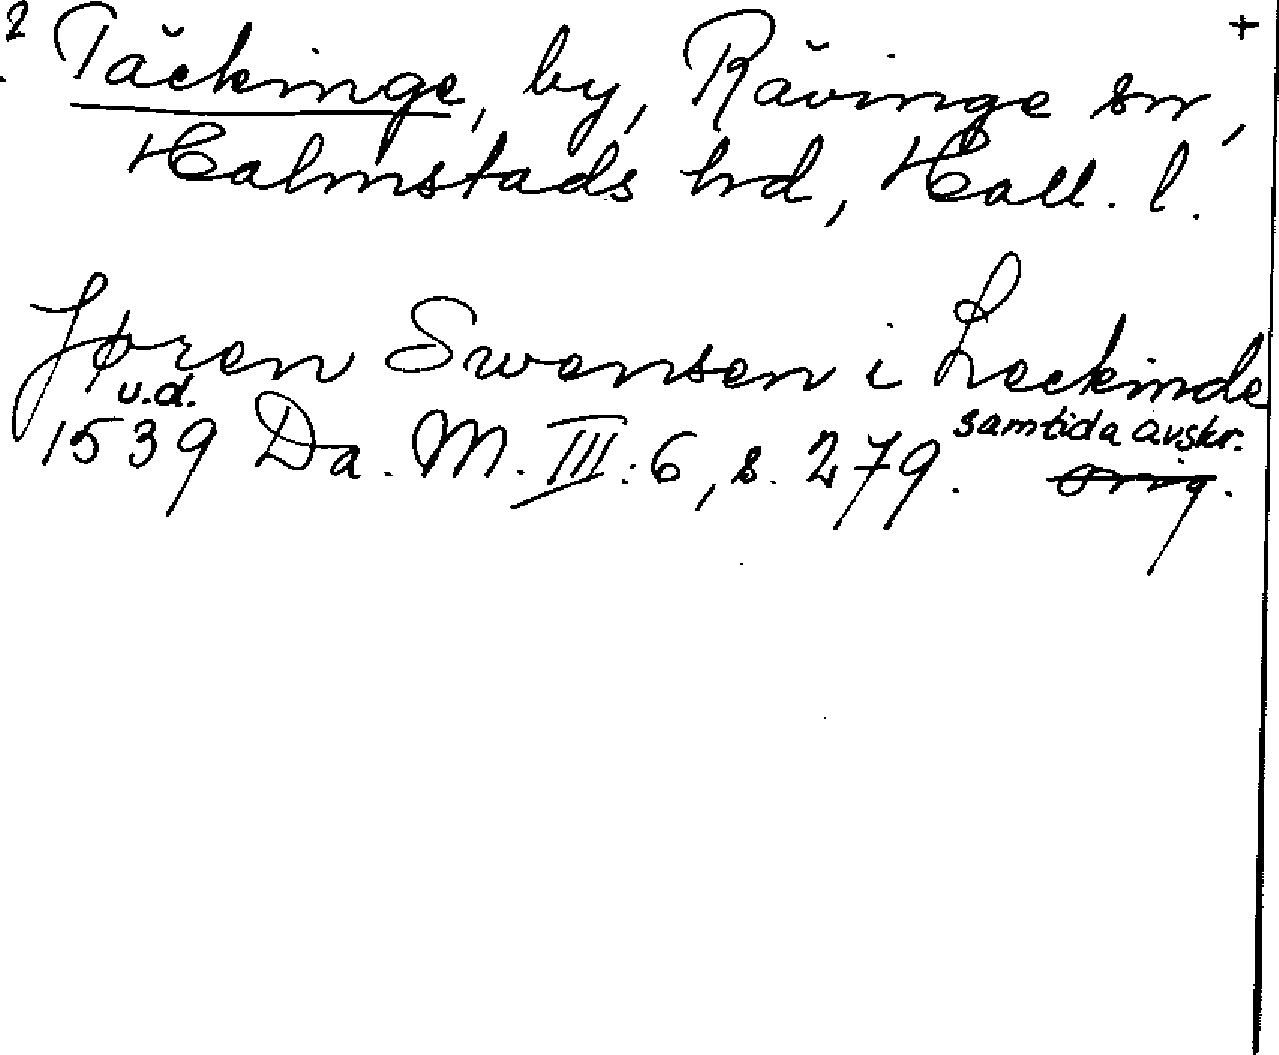 2 Täckinge, by, Rävinge sn, +
Halmstads hd, Hall. l.
Jøren Swensen i Leckinde
u.d.
1539 Da. M. III:6, s. 279. samtida avskr.
orig.